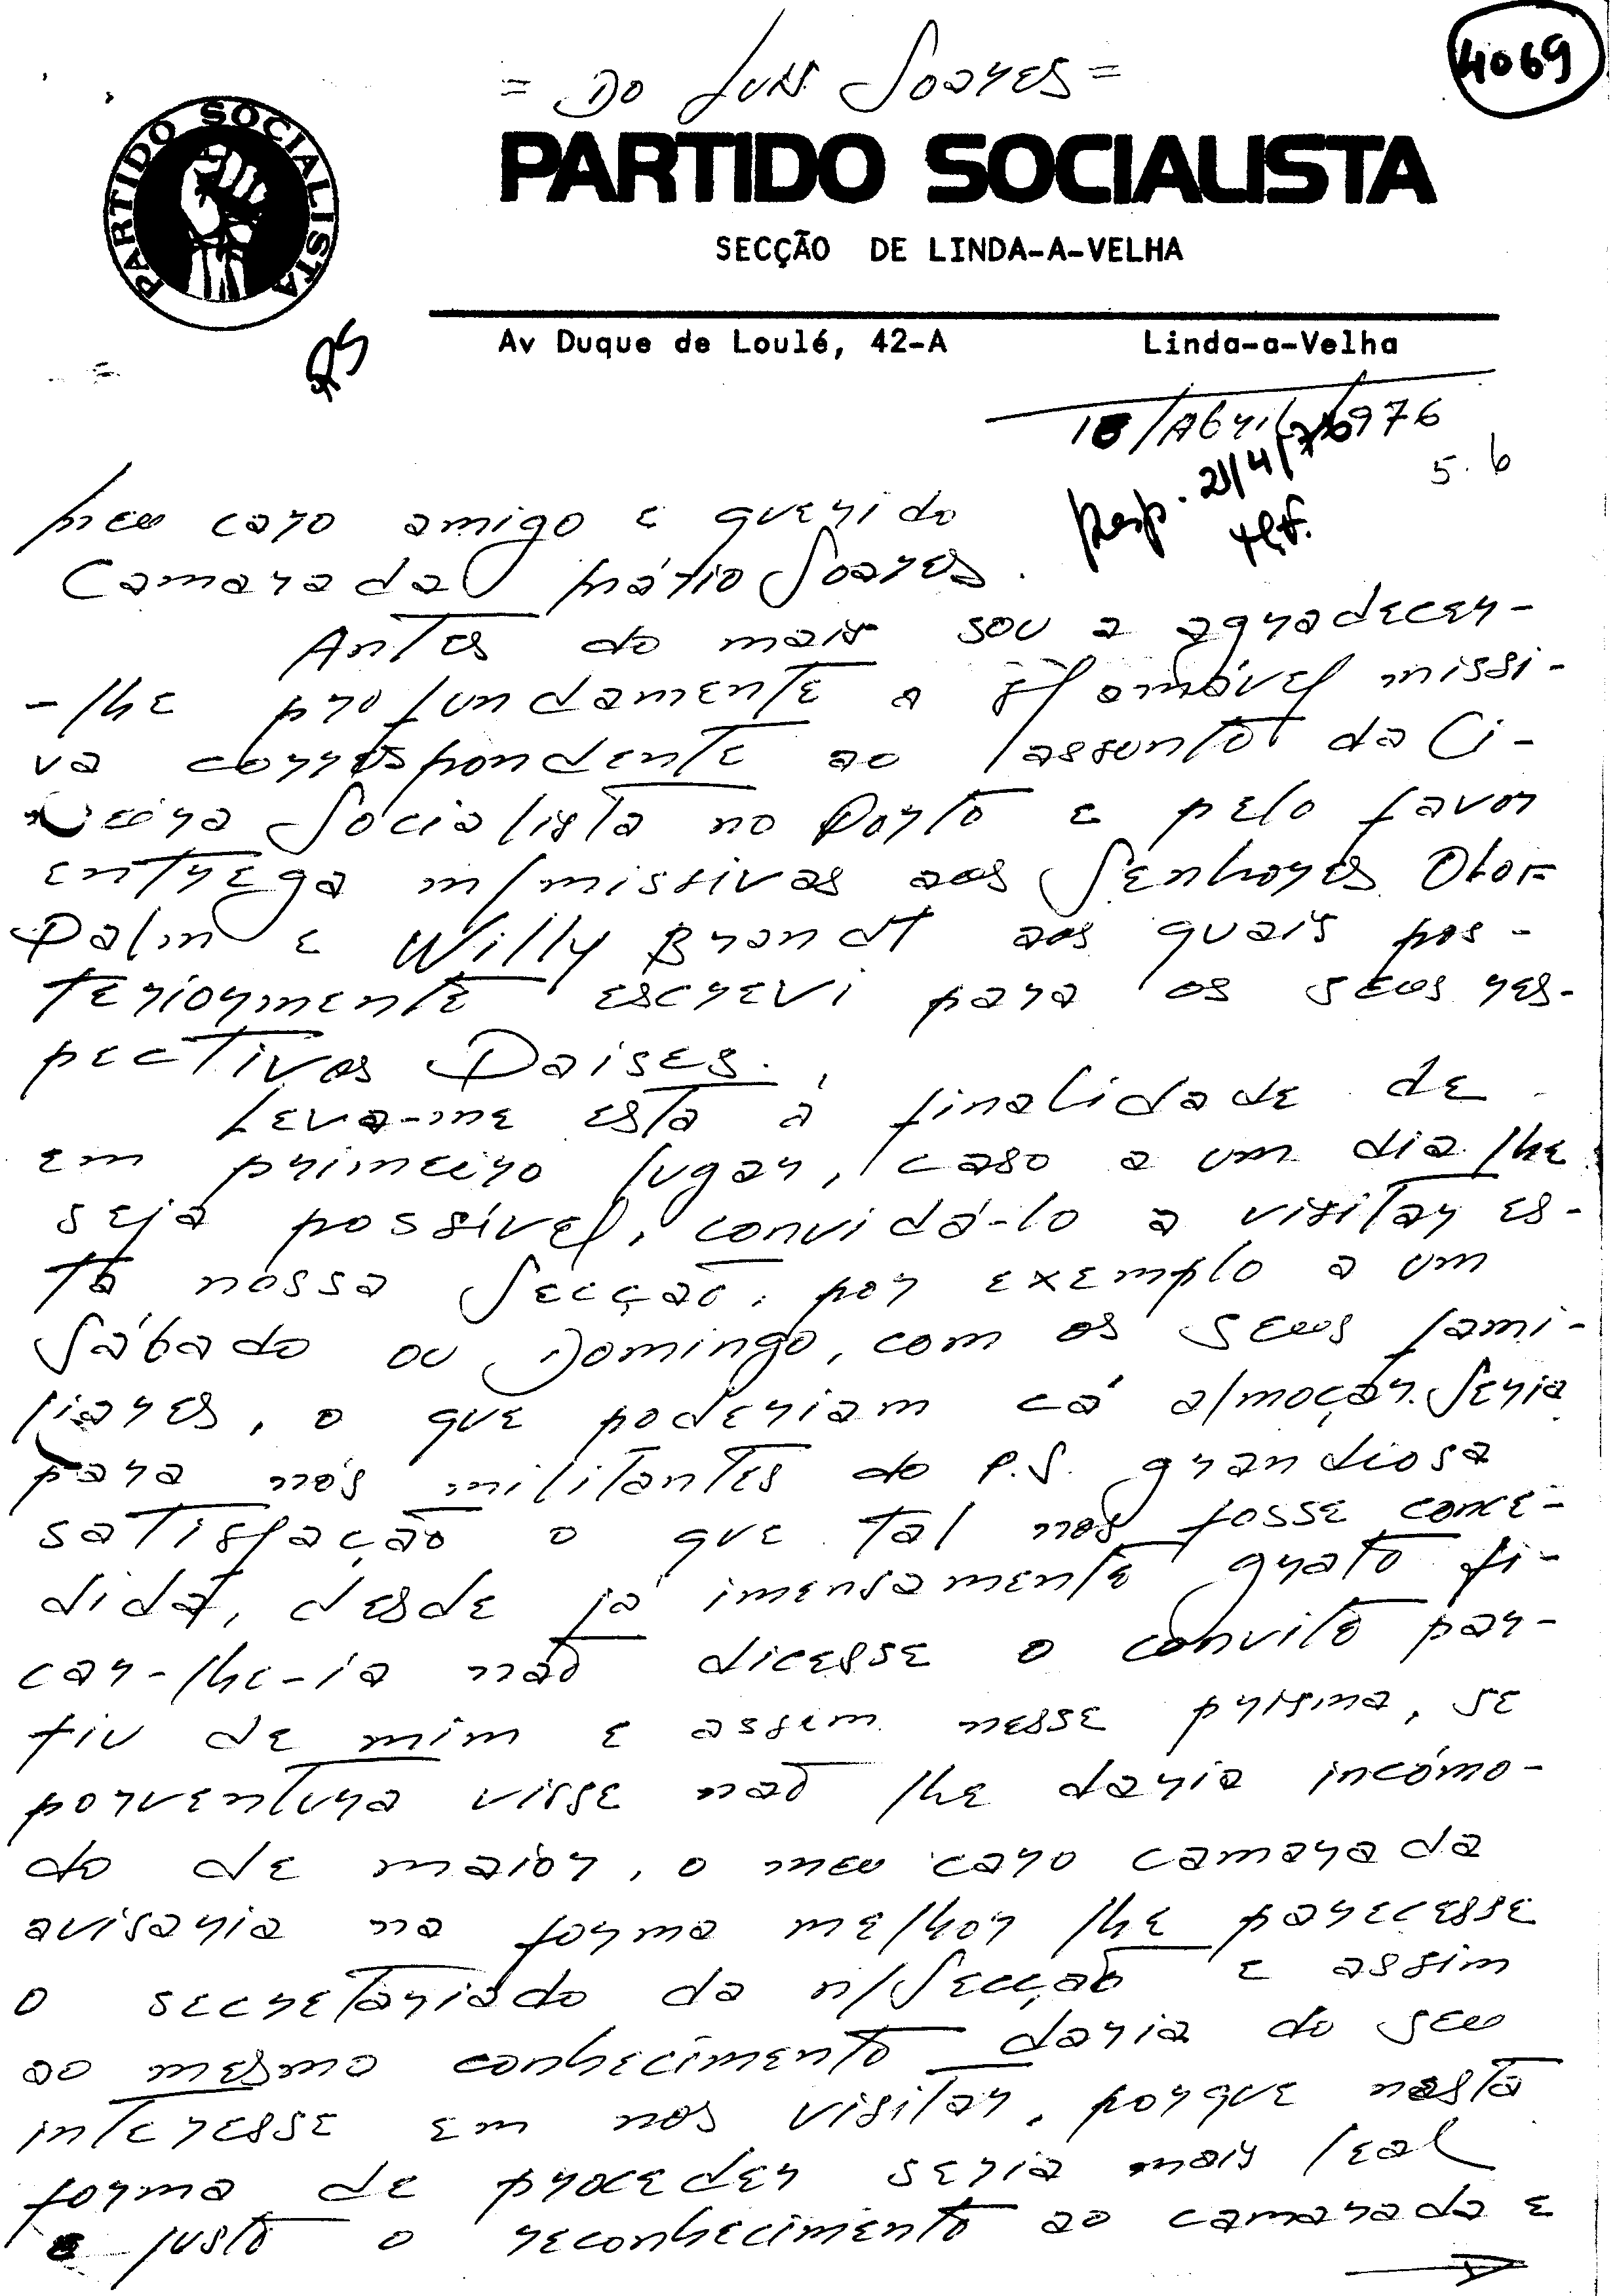 4069
= Do Luis Soares =
PARTIDO SOCIALISTA
PARTIDO SOCIALISTA
SECÇÃO DE LINDA-A-VELHA
Av Duque de Loulé, 42-A Linda-a-Velha
18/Abril/1976
5.6
Resp. 21/4/76
Meu caro amigo e querido
Camarada Mário Soares.
Antes do mais sou a agradecer-
-lhe profundamente a amável missi-
va correspondente ao assunto da Ci-
Socialista no Porto e pelo favor
entrega m/missivas aos Senhores Olof
Palm e Willy Brandt aos quais pos-
teriormente escrevi para os seus res-
pectivos Paises.
Leva-me esta à finalidade de
em primeiro lugar, caso a um dia lhe
seja possível, convidá-lo a visitar es-
ta nossa Secção, por exemplo a um
Sábado ou Domingo, com os seus fami-
liares, o que poderiam cá almoçar. Seria
para nós militantes do P.S. grandiosa
satisfação o que tal nos fosse conce-
dida, desde já imensamente grato fi-
car-lhe-ia não dicesse o convite par-
tiu de mim e assim nesse prisma, se
porventura visse não lhe daria incómo-
do de maior, o meu caro camarada
avisaria na forma melhor lhe parecesse
o secretariado da n/Secção e assim
ao mesmo conhecimento daria do seu
interesse em nos visitar, porque nesta
forma de proceder seria mais leal
e justo o reconhecimento ao camarada e